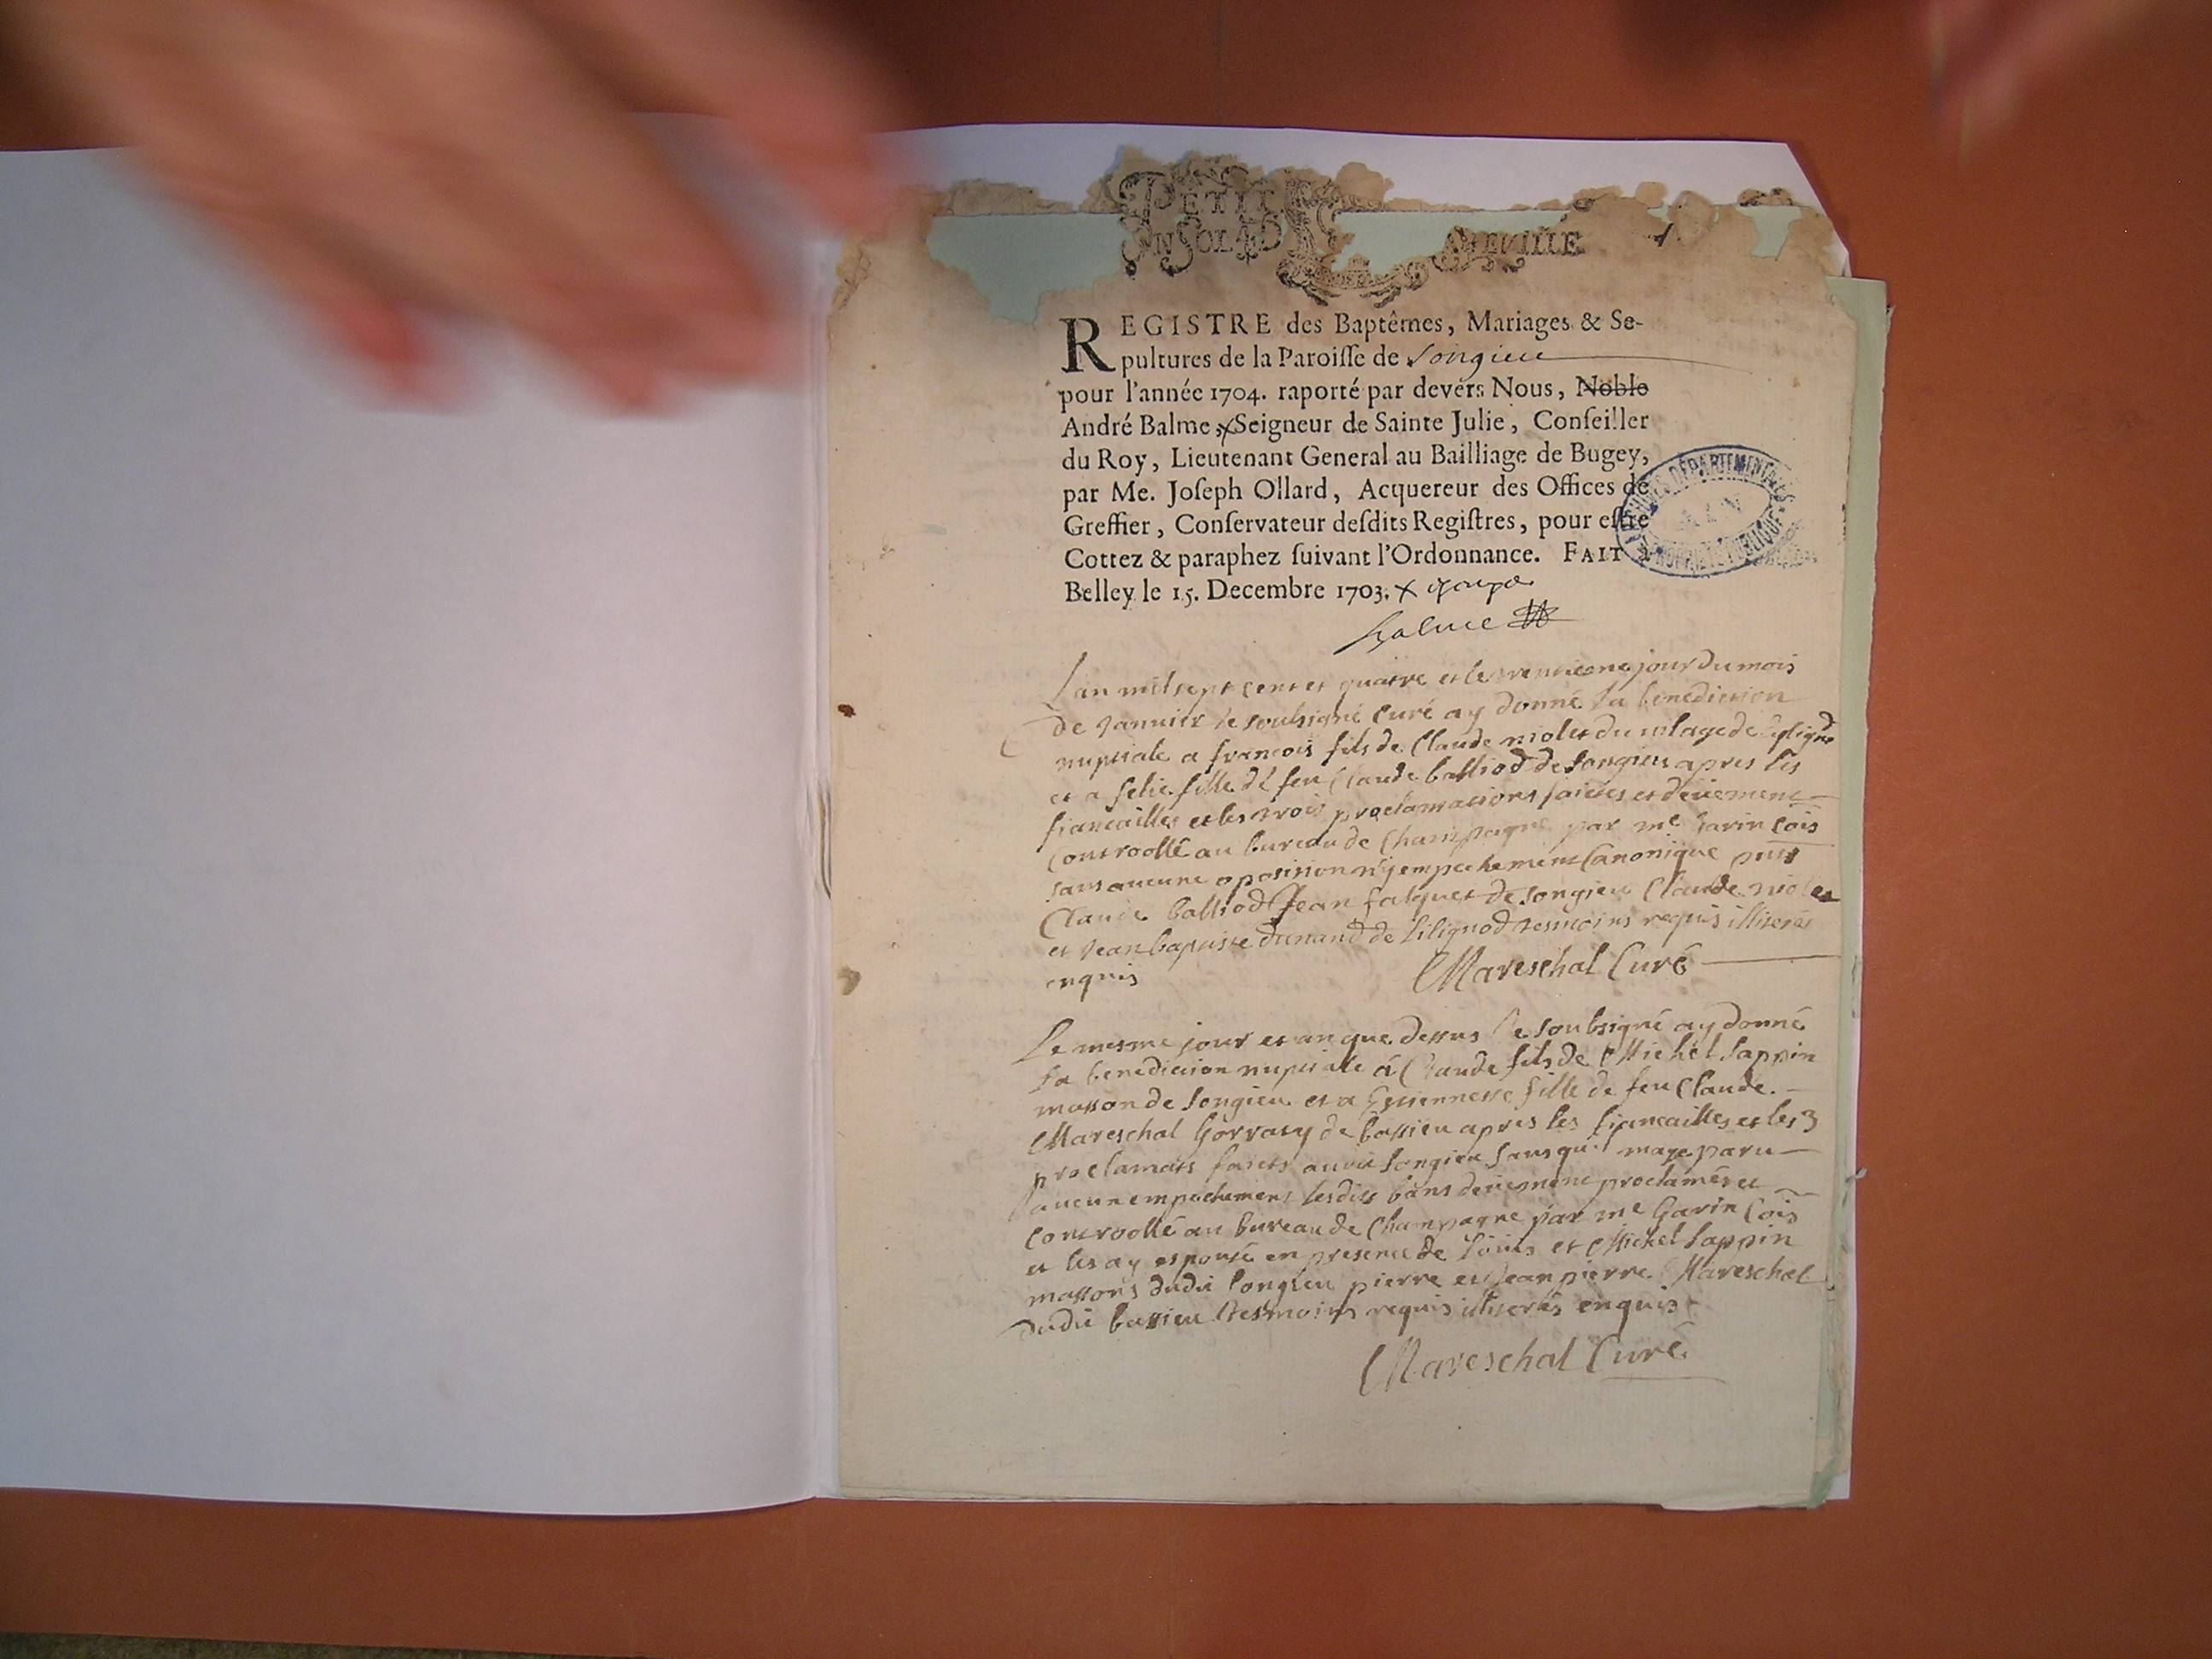 PETIT
REGISTRE des Baptêmes, Mariages & Se-
pultures de la Paroisse de Songieu
pour l'année 1704. raporté par devers Nous, Noble
André Balme, x Seigneur de Sainte Julie, Conseiller
du Roy, Lieutenant General au Bailliage de Bugey,
par Me. Joseph Ollard, Acquereur des Offices de
Greffier, Conservateur desdits Registres, pour estre
Cottez & paraphez suivant l'Ordonnance. FAIT à
Belley le 15. Decembre 1703. x
Balme
ARCHIVES DÉPARTEMENTALES
AIN
PROPRIÉTÉ PUBLIQUE
Lan mil sept cent et quatre et le jour du mois
de Janvier Je soubsigné Curé ay donné la benediction
nuptiale a francois fils de Claude niolet du vilage de
et a fille de feu Claude balliod de Songieu apres les
fiancailles et les trois proclamations faictes et deüement
Controollé au bureau de Champagne par me Garin Cois
sans aucune oposition ny empechement Canonique
Claude balliod Jean falquet de Songieu Claude niolet
et Jean baptiste dunand de Lilignod tesmoins requis illiterés
enquis
Mareschal Curé
Le mesme jour et an que dessus Je soubsigné ay donné
la benediction nuptiale à Claude fils de Michel Sappin
masson de Songieu et a Estiennette fille de feu Claude
Mareschal Gorraty de bassieu apres les fiancailles et les 3
proclamats faicts audit Songieu sans qu'il maye paru
aucun empechement lesdits bans deüement proclamés et
controollé au bureau de Champagne par me Garin Cois
et les ay espousé en presence de Louis et Michel Sappin
massons dudit Songieu pierre et Jean pierre Mareschal
dudit bassieu tesmoins requis illiterés enquis
Mareschal Curé